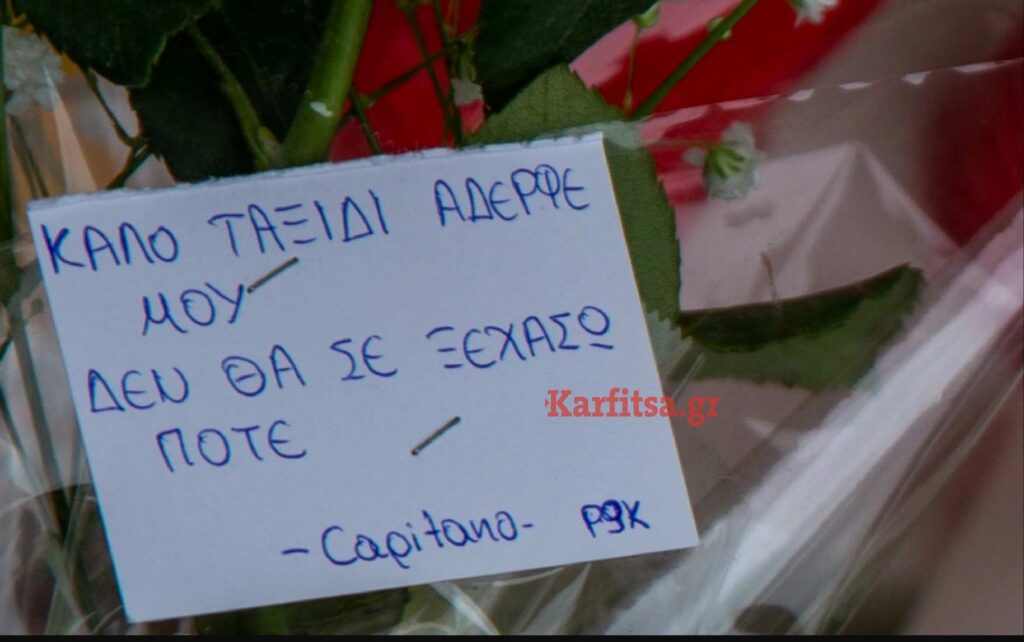 ΚΑΛΟ ΤΑΞΙΔΙ ΑΔΕΡΦΕ
ΜΟΥ
ΔΕΝ ΘΑ ΣΕ ΞΕΧΑΣΩ
ΠΟΤΕ
Karfitsa.gr
-Capitano- P9K